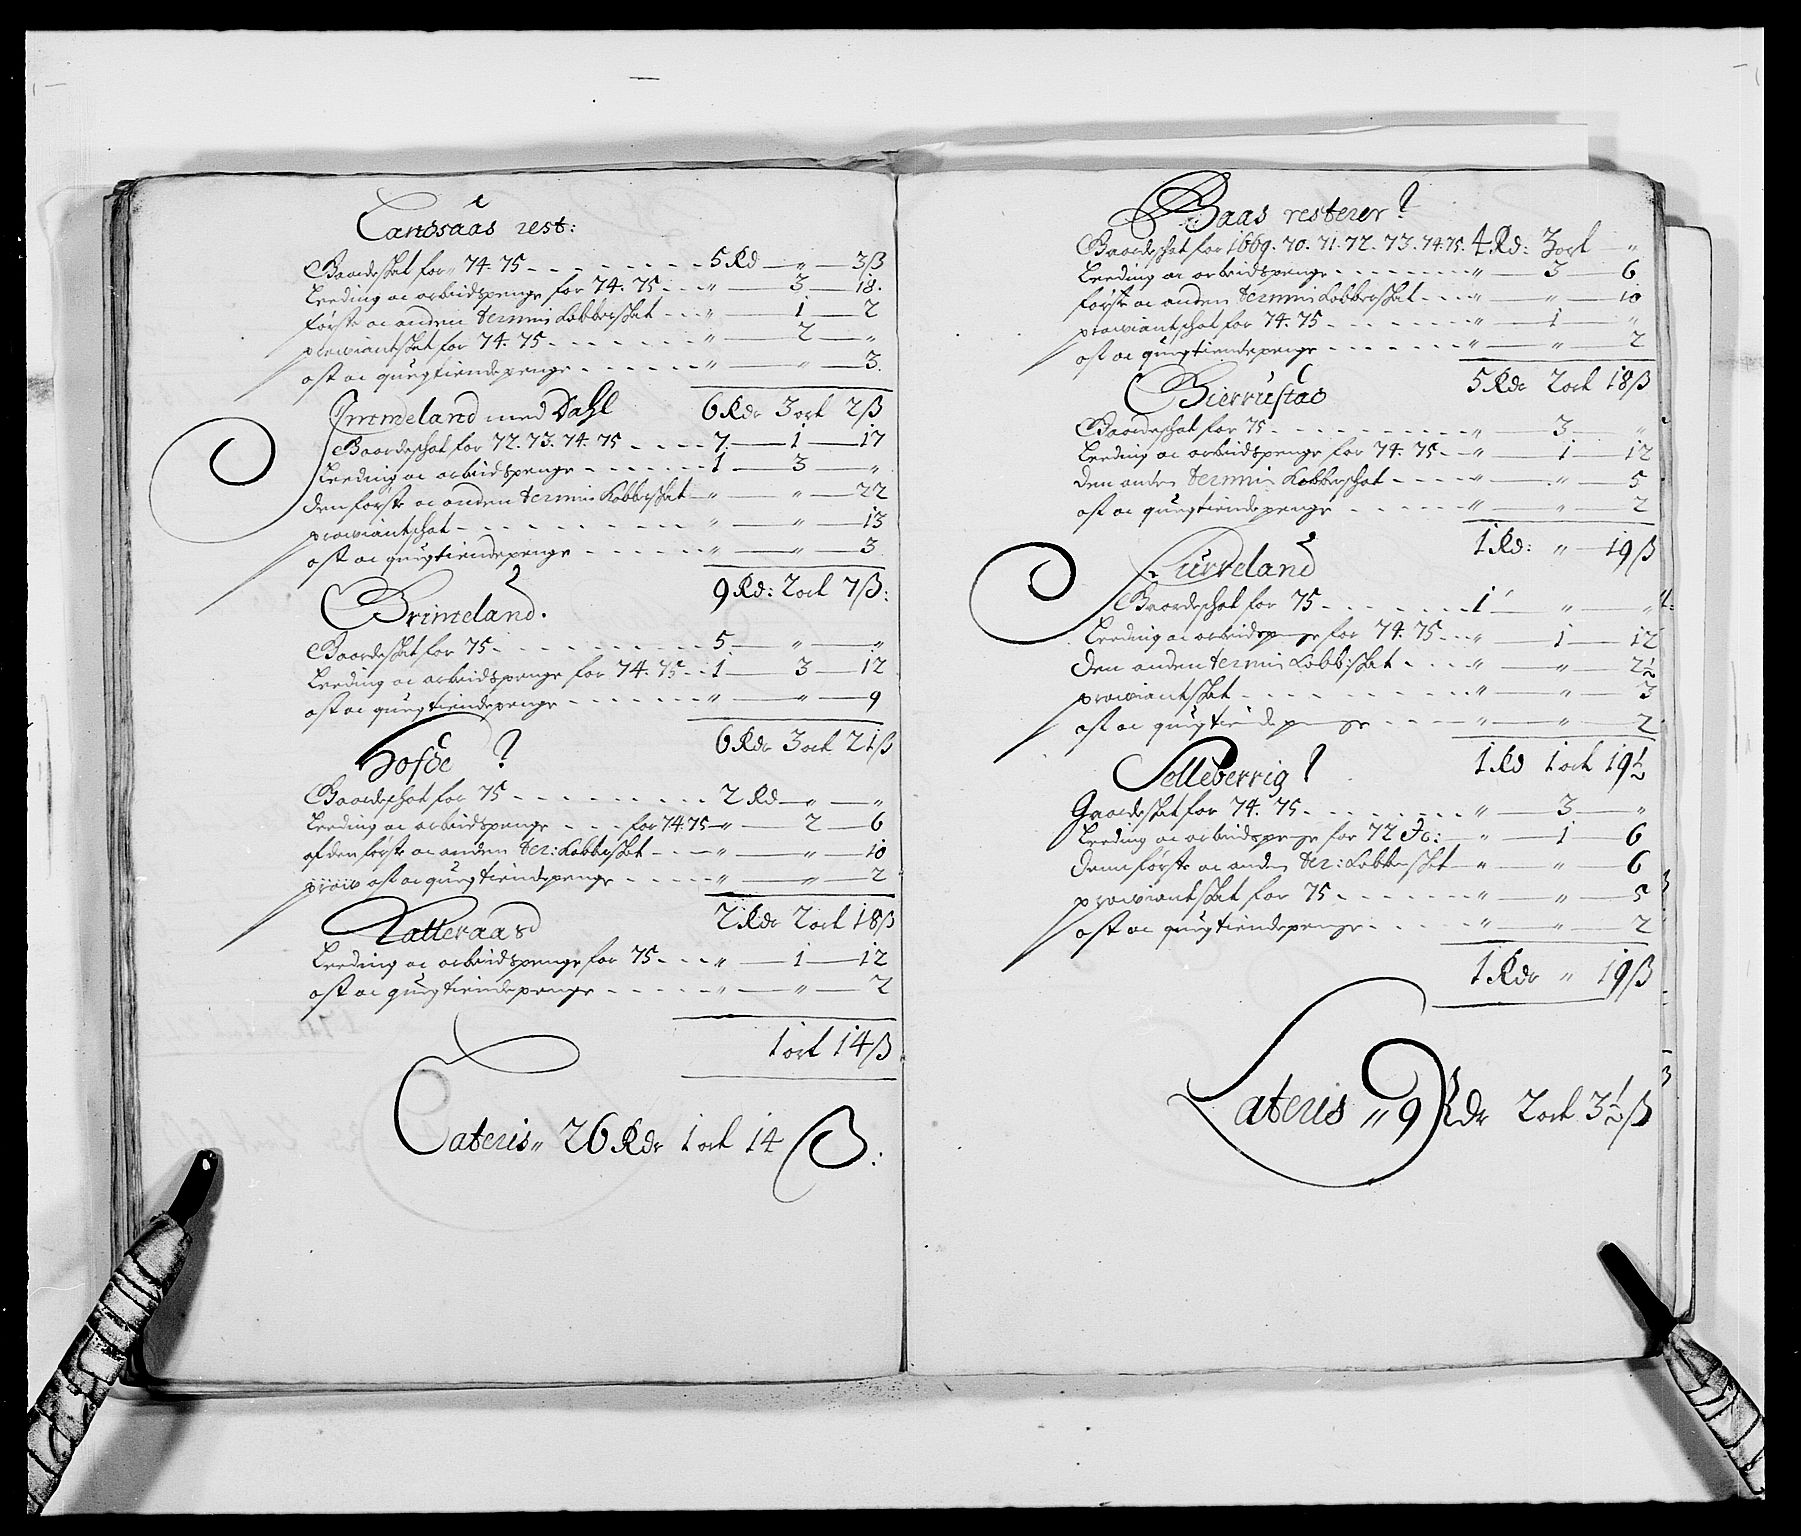 Landsaas rest:
Gaardeskat for 74. 75 5 Rd " 3 ß
Leeding oc arbeidspenge for 74. 75 " 3 18.
første oc anden termin Kobberskat " 1 2
proviantskat for 74. 75 " 2 "
ost oc quegtiendepenge " " 3.
6 Rdr 3 ort 2 ß
Jmmeland med Dahl
Gaardeskat for 72. 73. 74. 75 7 1 17
Leeding oc arbeidspenge 1 3 "
den første oc anden termin Kobberskat " " 22
proviantskat " " 13
ost oc quegtiendepenge " " 3
9 Rd: 2 ort 7 ß:
Grimeland.
Gaardeskat for 75 5 " "
Leeding oc arbeidspenge for 74. 75 1 3 12
ost oc quegtiendepenge " " 9
6 Rdr 3 ort 21 ß
Hofde
Gaardeskat for 75 2 Rd " "
Leeding oc arbeidspenge for 74 75 " 2 6
af den første oc anden ter: Kobberskat " " 10
prowi ost oc quegtiendepenge " " 2
2 Rdr 2 ort 18 ß
Katteraasd
Leeding oc arbeidspenge for 75 " 1 12
ost oc quegtiendepenge " " 2
1 ort 14 ß
Lateris " 26 Rdr 1 ort 14 ß:
Baas resterer
Gaardeskat for 1669. 70. 71. 72. 73. 74. 75. 4 Rd: 3 ort "
Leeding oc arbeidspenge " 3 6
første oc anden termin Kobberskat " " 10
proviantskat for 74. 75 " 1 "
ost oc quegtiendepenge " " 2
5 Rdr 2 ort 18 ß
Bierrustad
Gaardeskat for 75 " 3 "
Leeding oc arbeidspenge for 74. 75 " 1 12
den anden termin Kobberskat " " 5
ost oc quegtiendepenge " " 2
1 Rd: " 19 ß
Lurreland
Gaardeskat for 75 1 " "
Leeding oc arbeidspenge for 74. 75 " 1 12
den anden termin Kobb:skat " " 2½
proviantskat " " 3
ost oc quegtiendepenge " " 2
1 Rd 1 ort 19½
Selleberrig
Gaardeskat for 74. 75 " 3 "
Leeding oc arbeidspenge for 72 &c: " 1 6
denn første oc anden ter: Kobberskat " " 6
proviantskat for 75 " " 5
ost oc quegtiendepenge " " 2
1 Rdr " 19 ß
Lateris " 9 Rdr 2 ort 3½ ß